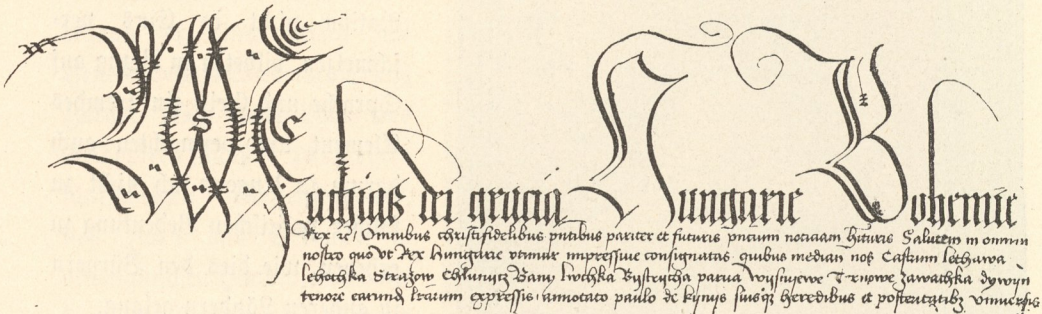 Mathias dei gracia Hungarie Bohemie
Rex etc. Omnibus christifidelibus pntibus pariter et futuris pntium noticiam hituris Salutem in omnium
nostro quo vt Rex Hungarie vtimur impressiue consignatas quibus median nos Castrum lethawa
lehothka Strazow Chlunycz Bany lwchka Bystrycha parua Vysnyewe Trnowe zawathka dywyn
tenore earund lraum expressis annotato paulo de kynys suisq heredibus et posteritatibz vniuersis